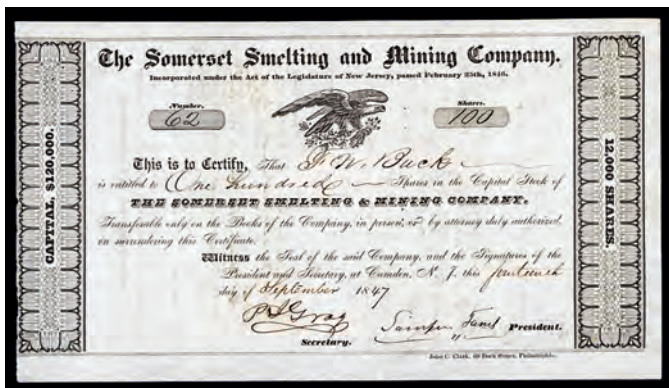 The Somerset Smelting and Mining Company.
Incorporated under the Act of the Legislature of New Jersey, passed February 25th, 1846.
Number. 62
Shares. 100
This is to Certify, That F. W. Buck
is entitled to One hundred Shares in the Capital Stock of
THE SOMERSET SMELTING & MINING COMPANY.
Transferable only on the Books of the Company, in person, or by attorney duly authorized,
on surrendering this Certificate.
Witness the Seal of the said Company, and the Signatures of the
President and Secretary, at Camden, N. J. this fourteenth
day of September 1847
Gray
Secretary.
President.
John C. Clark, 60 Dock Street, Philadelphia.
CAPITAL, $120,000.
12,000 SHARES.